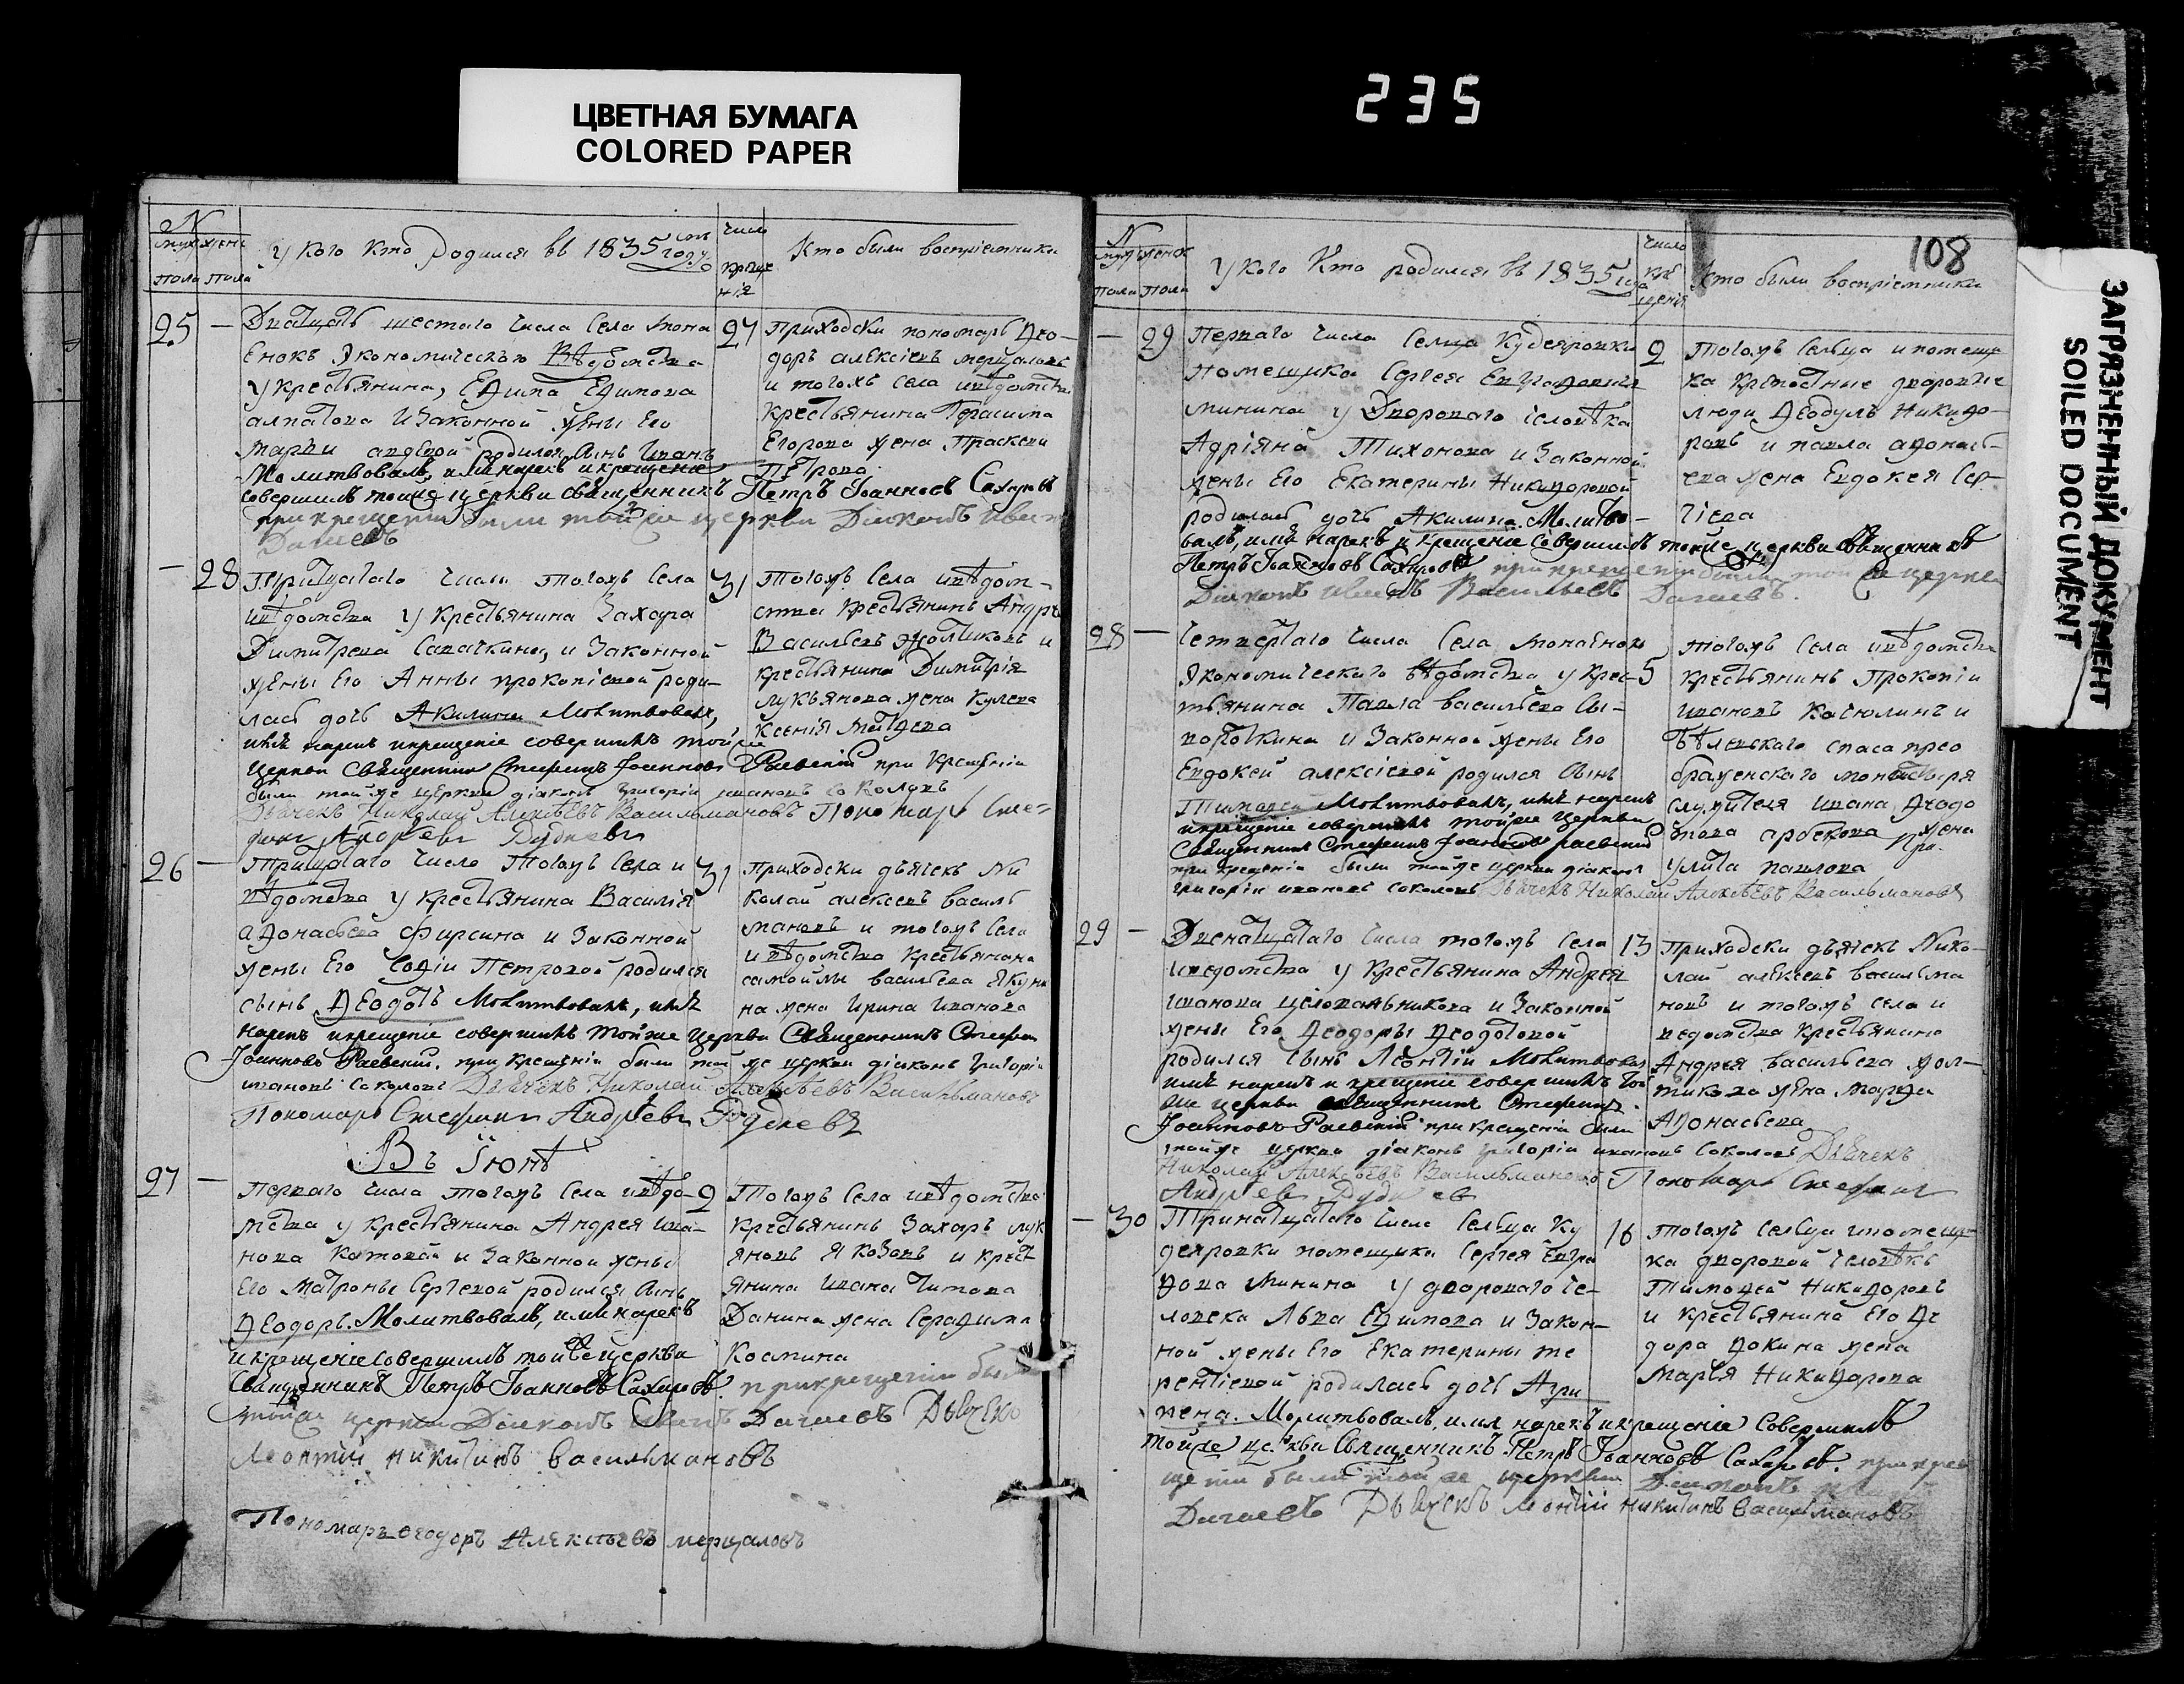 ЦВЕТНАЯ БУМАГА
COLORED PAPER
235
ЗАГРЯЗНЕННЫЙ ДОКУМЕНТ
SOILED DOCUMENT
N
муж жен
пола пола
У кого кто родился въ 1835 году
число
креще
нія
Кто были воспріемники
25 —
Дватцать шестаго числа села Мона
Енокъ Экономическаго Вѣдомства
у крестьянина, Ефима Ефимова
алпатова и законной жены Его
родился сынъ Иванъ
Молитвовалъ, имя нарекъ и крещеніе
совершилъ тойже церкви священникъ Петръ Іоанновъ Сахаровъ
при крещеніи были тойже церкви Діаконъ Иванъ
Дагаевъ
27
Приходски пономарь Ѳео-
доръ алексіевъ мерцаловъ
и тогожъ села и вѣдомства
крестьянина Герасима
Егорова жена Праскева
Петрова
— 28
Тритцатаго числа тогожъ села
и вѣдомства у крестьянина Захара
Димитрева Савачкина, и законной
жены его Анны прокопіевой роди-
лась дочь Акилина Молитвовалъ,
имя нарекъ и крещеніе совершилъ тойже
церкви Священникъ Стефанъ Іоанновъ Раевскій при крещеніи
были тойже церкви діаконъ григорій ивановъ соколовъ
Дьячекъ Николай Алексѣевъ Васильмановъ Пономарь Сте-
фанъ Андреевъ Рудневъ
31
Тогожъ села и вѣдом-
ства крестьянинъ Андрей
Васильевъ Желтиковъ и
крестьянина Димитрія
лукьянова жена кулева
Ксенія Матфева
26 —
Тритцатаго число тогожъ села и
вѣдомства у крестьянина Василія
аѳонасьева Фирсина и законной
жены Его Софіи Петровой родился
сынъ Ѳеодотъ Молитвовалъ, имя
нарекъ и крещеніе совершилъ тойже церкви Священникъ Стефанъ
Іоанновъ Раевскій. при крещеніи были той же церкви діаконъ григорій
ивановъ соколовъ Дьячекъ Николай Алексѣевъ Васильмановъ
Пономарь Стефанъ Андреевъ Рудневъ
31
Приходски дьячекъ Ни
колай алексеевъ василь
мановъ и тогожъ села
и вѣдомства крестьянина
самойлы васильева Якуни
на жена Ирина Иванова
Въ Іюнѣ
27 —
Перваго числа тогожъ села и вѣдо-
мства у крестьянина Андрея ива-
нова и законной жены
Его Матроны Сергевой родился сынъ
Ѳеодоръ. Молитвовалъ, имя нарекъ
и крещеніе совершилъ тойже церкви
Священникъ Петръ Іоанновъ Сахаровъ. при крещеніи были
тойже церкви Діаконъ Иванъ Дагаевъ Дьячекъ
Леонтій никитинъ Васильмановъ
Пономарь Ѳеодоръ Алексѣевъ мерцаловъ
2
Тогожъ села и вѣдомства
крестьянинъ Захаръ лук
яновъ Якозовъ и крест
янина ивана титова
Данина жена Серафима
Космина
108
N
муж женск
пола пола
У кого Кто родился въ 1835 году
число
кре
щенія
Кто были воспріемники
— 29
Перваго числа Сельца Кудеяровки
помещика Сергея Евграфовича
минина у Двороваго человѣка
Адріяна Тихонова и законной
жены Его Екатерины Никифоровой
родилась дочь Акилина. Молитво-
валъ, имя нарекъ и крещеніе совершилъ тойже церкви Священникъ
Петръ Іоанновъ Сахаровъ при крещеніи были тойже церкви
Діаконъ Иванъ Васильевъ Дагаевъ.
2
Тогожъ сельца и помещи
ка крепостные дворовые
люди Ѳеодулъ Никифо-
ровъ и павла афонась-
ева жена Евдокея Сер-
гіева
28 —
Четвертаго числа села монаенокъ
Экономическаго вѣдомства у крес-
тьянина Павла васильева Сы-
воткина и законной жены Его
Евдокей алексіевой родился сынъ
Тимофей Молитвовалъ, имя нарекъ
и крещеніе совершилъ тойже церкви
Священникъ Стефанъ Іоанновъ раевскій
при крещеніи были тойже церкви діаконъ
григорій ивановъ соколовъ Дьячекъ Николай Алексѣевъ Васильмановъ
5
тогожъ села и вѣдомства
крестьянинъ Прокопій
ивановъ Катюлинъ и
бѣлевскаго спаса прео
браженского монастыря
служителя ивана Ѳеодо
това жена
улита павлова
29 —
Двенатцатаго числа тогожъ села
и ведомства у крестьянина Андрея
иванова целовальникова и законной
жены Его Ѳеодоры Ѳеодотовой
родился сынъ Леонтій Молитвовалъ
имя нарекъ и крещеніе совершилъ той
же церкви священникъ Стефанъ
Іоанновъ Раевскій при крещеніи были
тойже церкви діаконъ григорій ивановъ соколовъ Дьячекъ
Николай Алексѣевъ Васильмановъ Пономарь Стефанъ
Андреевъ Рудневъ
13
Приходски дьячекъ Нико-
лай алексеевъ васильма
новъ и тогожъ села и
ведомства крестьянина
Андрея васильева жол-
тикова жена Марфа
Афонасьева
— 30
Тринатцатаго числа сельца Ку
деяровки помещика Сергея Евгра
фова Минина у двороваго че-
ловека Льва Ефимова и Закон-
ной жены Его Екатерины те
рентіевой родилась дочь Агри
пена. Молитвовалъ, имя нарекъ и крещеніе совершилъ
тойже церкви Священникъ Петръ Іоанновъ Сахаровъ. при кре
щеніи были тойже церкви Діаконъ
Дагаевъ Дьячекъ Леонтій никитинъ Васильмановъ
16
тогожъ сельца и помещи-
ка дворовой человѣкъ
Тимофей Никифоровъ
и крестьянина Его Ѳе
дора фокина жена
Марья Никифорова